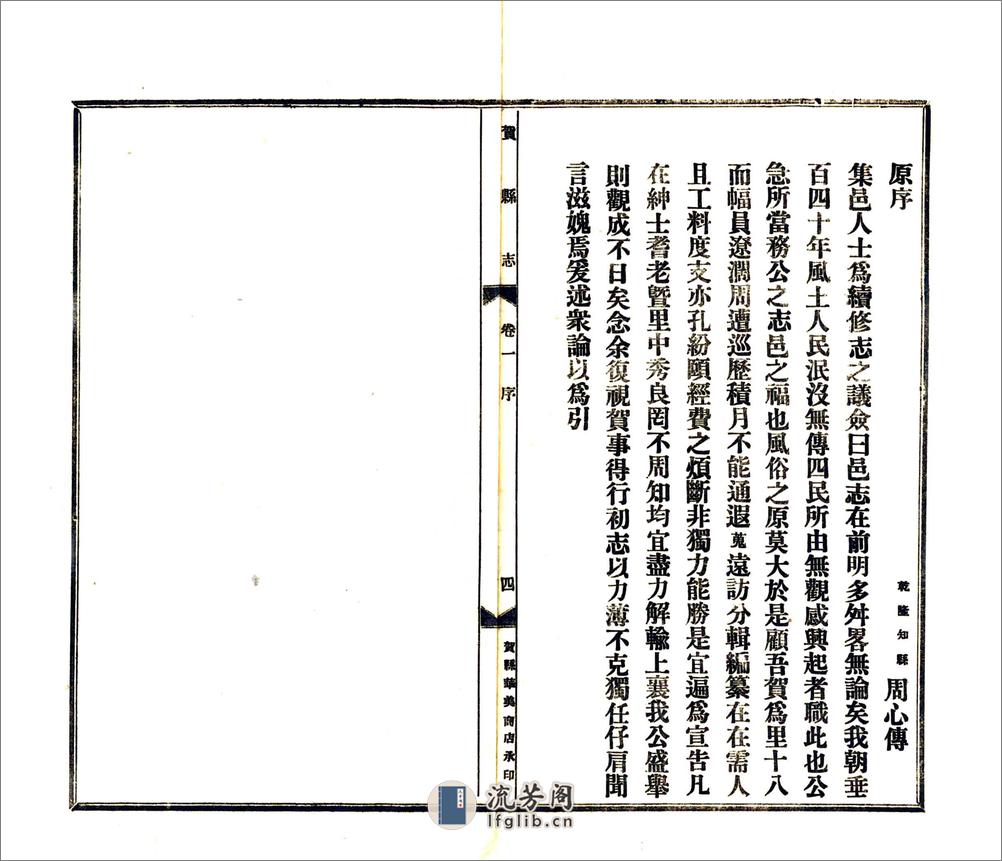 原序
乾隆知縣 周心傳
集邑人士爲續修志之議僉曰邑志在前明多舛畧無論矣我朝垂
百四十年風土人民泯沒無傳四民所由無觀感興起者職此也公
急所當務公之志邑之福也風俗之原莫大於是顧吾賀爲里十八
而幅員遼濶周遭巡歷積月不能通遐蒐遠訪分輯編纂在在需人
且工料度支亦孔紛頤經費之煩斷非獨力能勝是宜遍爲宣吿凡
在紳士耆老曁里中秀良罔不周知均宜盡力解輸上襄我公盛舉
則觀成不日矣念余復視賀事得行初志以力薄不克獨任仔肩聞
言滋媿焉爰述衆論以爲引
賀縣志
卷一 序
四
賀縣華美商店承印
流芳阁
lfglib.cn